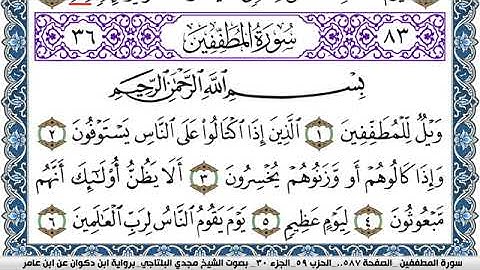 ٣٦ سُورَةُ المُطَفِّفِينَ ٨٣
بِسْمِ اللَّهِ الرَّحْمَٰنِ الرَّحِيمِ
وَيْلٌ لِّلْمُطَفِّفِينَ ١ الَّذِينَ إِذَا اكْتَالُوا عَلَى النَّاسِ يَسْتَوْفُونَ ٢
وَإِذَا كَالُوهُمْ أَو وَّزَنُوهُمْ يُخْسِرُونَ ٣ أَلَا يَظُنُّ أُولَٰئِكَ أَنَّهُم
مَّبْعُوثُونَ ٤ لِيَوْمٍ عَظِيمٍ ٥ يَوْمَ يَقُومُ النَّاسُ لِرَبِّ الْعَالَمِينَ ٦
سورة المطففين _ الصفحة ٥٨٧ _ الحزب ٥٩ _ الجزء ٣٠ _ بصوت الشيخ مجدي البلتاجي _ برواية ابن ذكوان عن ابن عامر